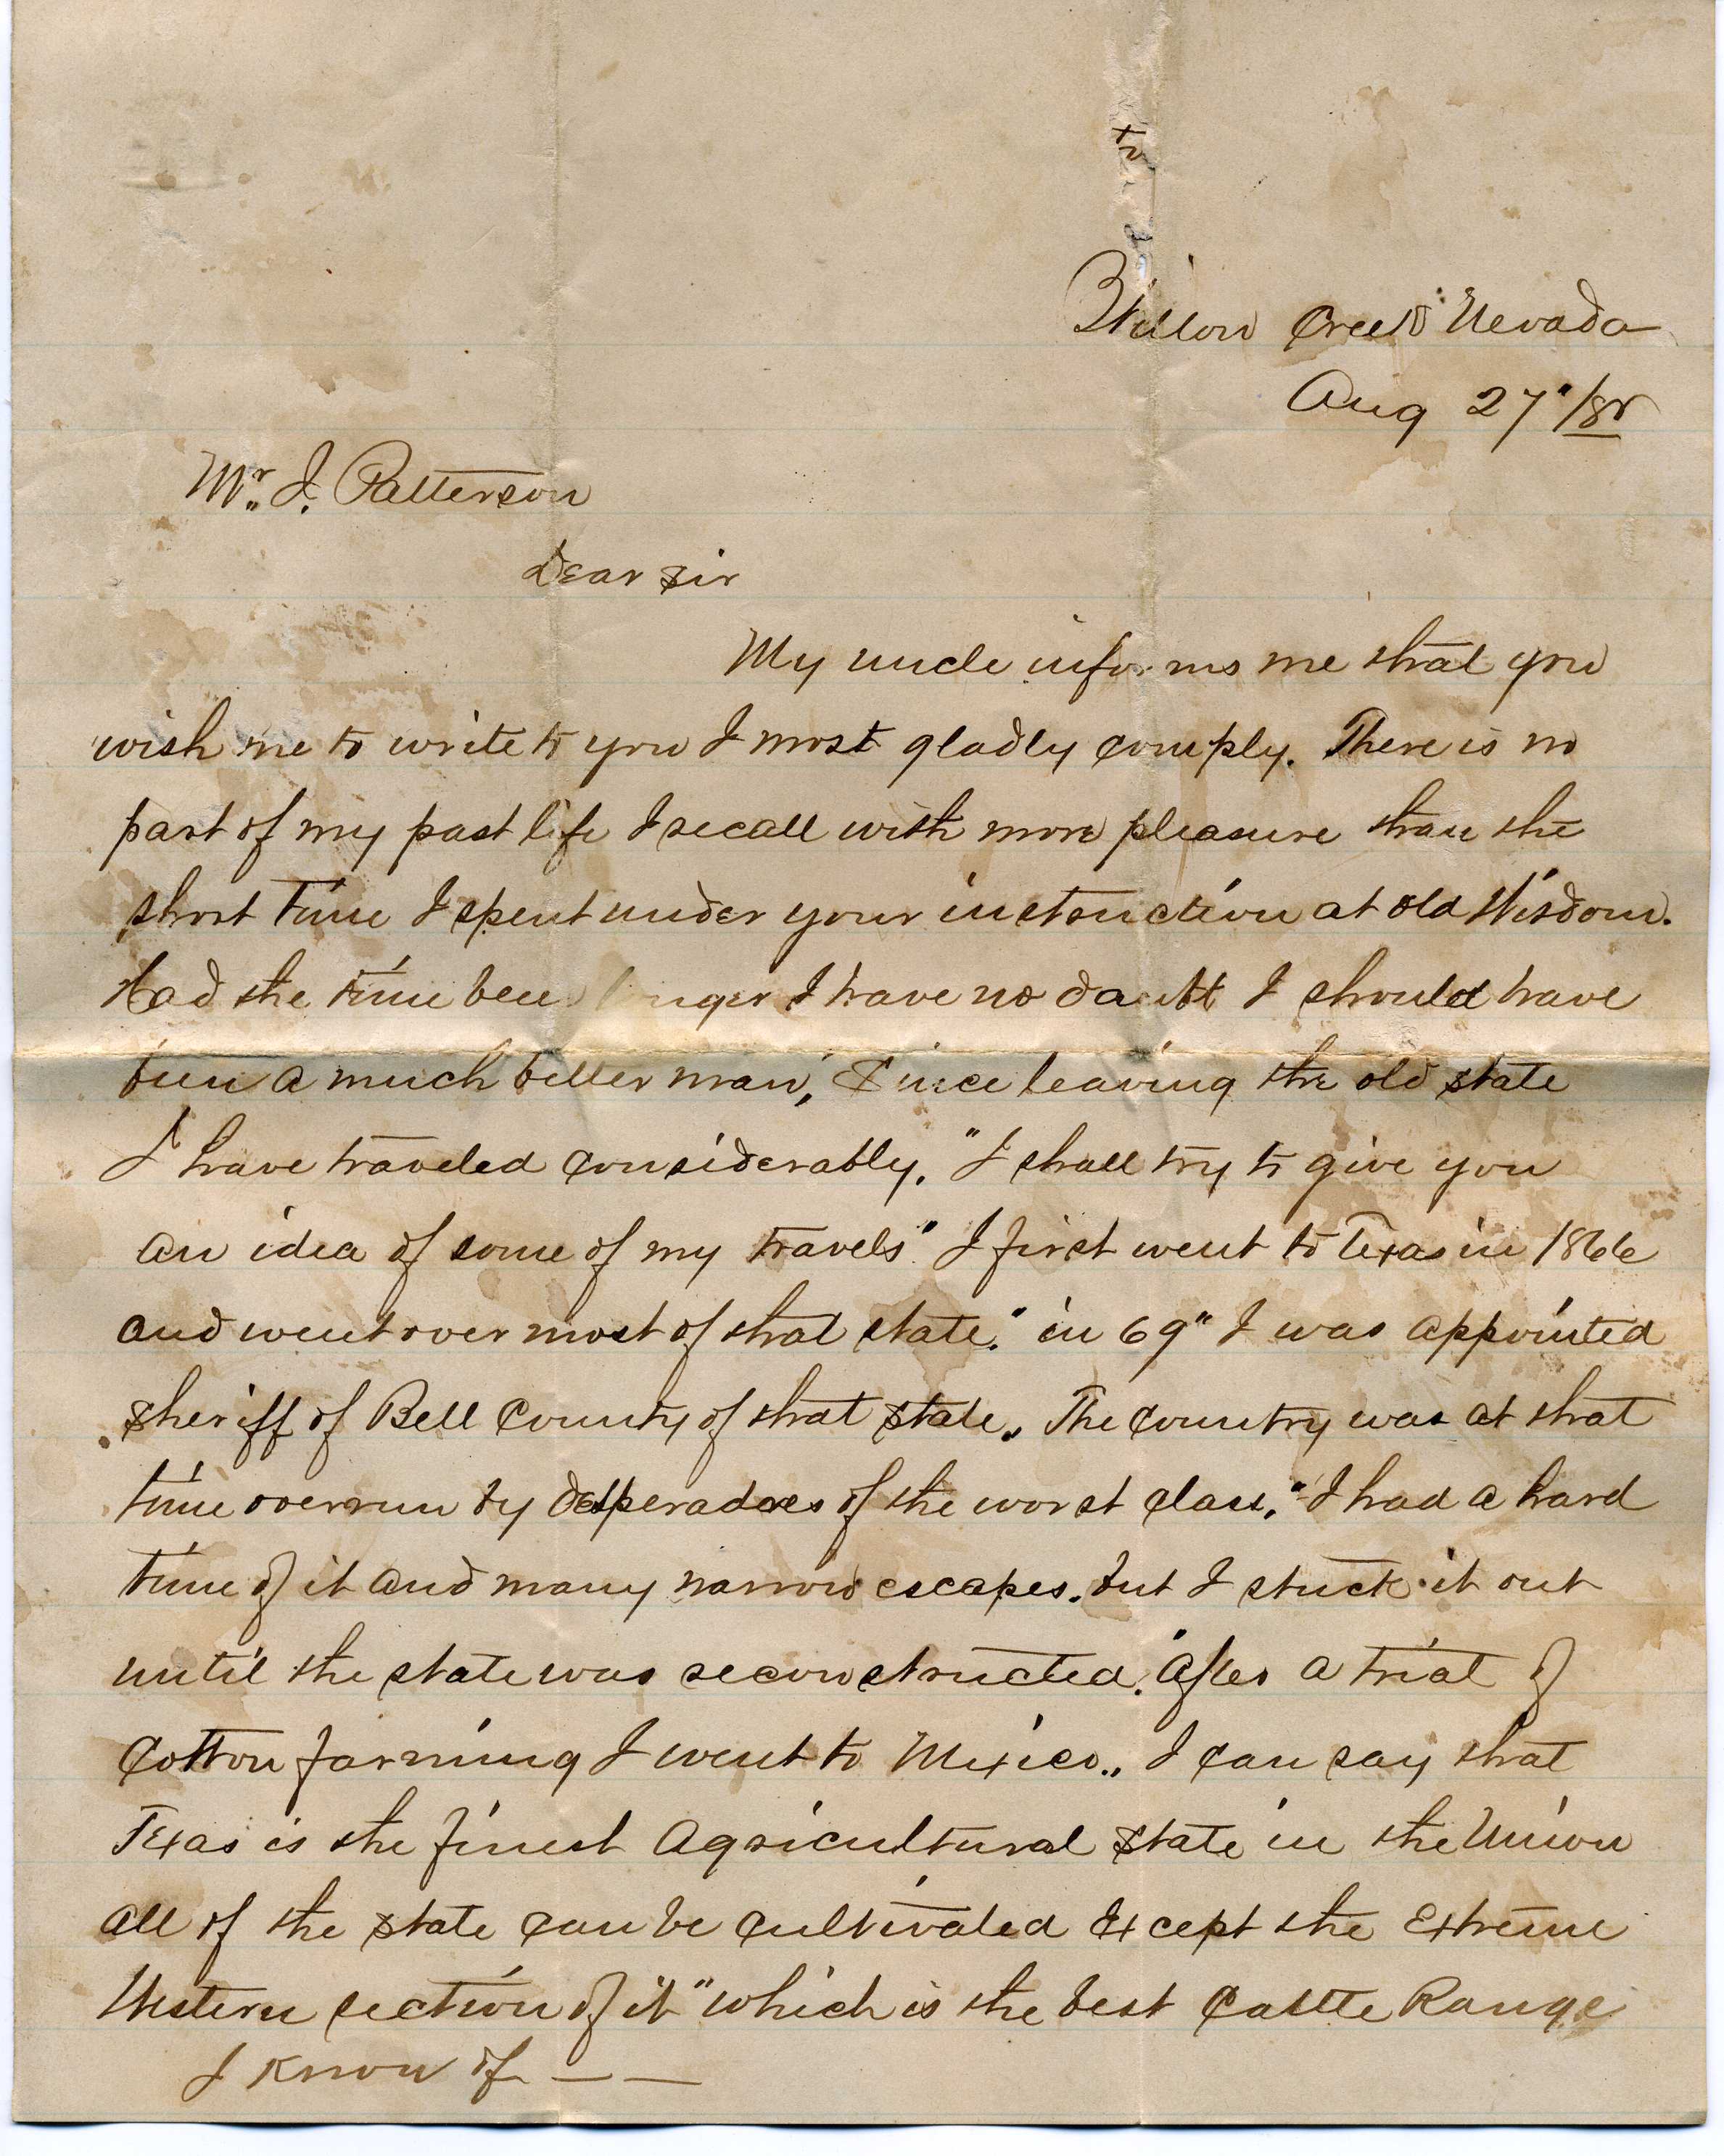 Willow Creek Nevada
Aug 27"/8
Mr. J. Patterson
Dear Sir
My uncle informs me that you
wish me to write to you I most gladly comply. There is no
part of my past life I recall with more pleasure than the
short time I spent under your instruction at old Wisdom.
Had the time been longer I have no doubt I should have
been a much better man, Since leaving the old state
I have traveled considerably. "I shall try to give you
an idea of some of my travels" I first went to Texas in 1866
and went over most of that state." in 69" I was appointed
sheriff of Bell County of that state. The country was at that
time overrun by desperadoes of the worst class." I had a hard
time of it and many narrow escapes. but I stuck it out
until the state was reconstructed. After a trial of
Cotton farming I went to Mexico.. I can say that
Texas is the finest Agricultural state in the Union
all of the state can be cultivated except the Extreme
Western section of it" which is the best Cattle Range
I know of — —